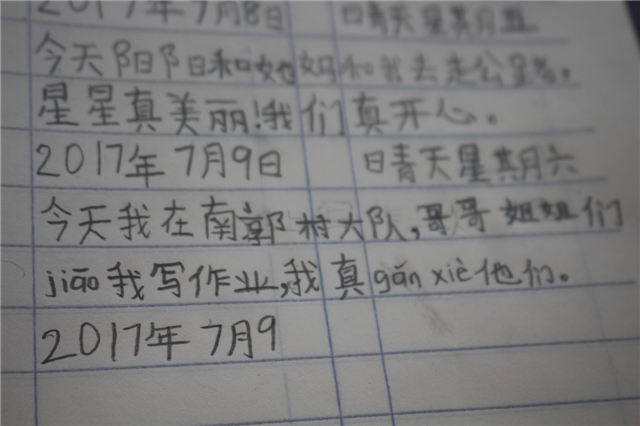 2017年7月8日 日青天星其月五
今天阳阳和她妈和我去走公路,
星星真美丽!我们真开心。
2017年7月9日 日青天星其月六
今天我在南郭村大队,哥哥姐姐们
jiāo我写作业,我真gǎn xiè他们。
2017年7月9